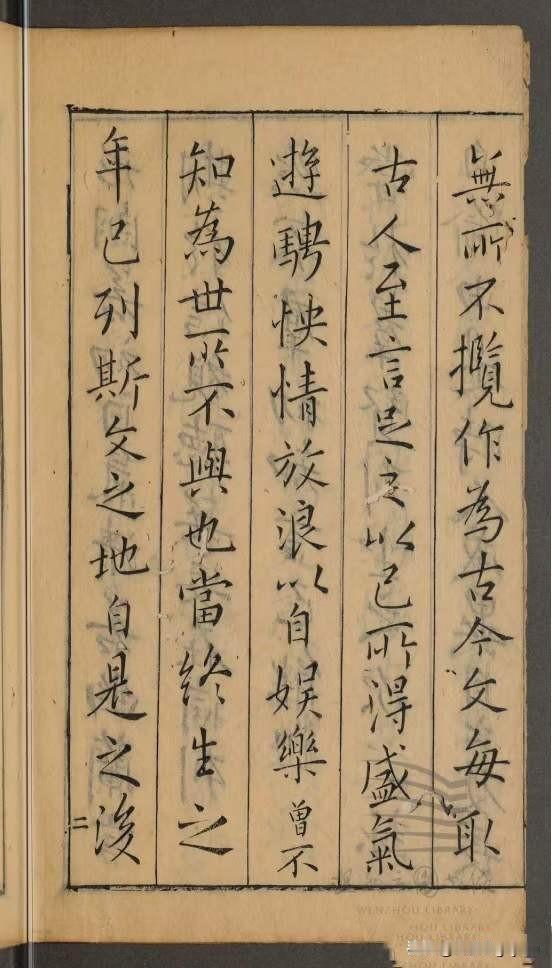 無所不攬作為古今文每取
古人至言足之以已所得盛氣
遊騁怏情放浪以自娯樂曾不
知為世所不與也當終生之
年已列斯文之地自是之後
二
WENZHOU LIBRARY
HOU LIBRARY
HOU LIBRARY